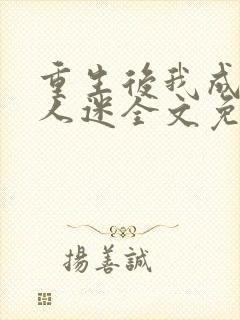 重生後我成
人迷全文免
揚善誠